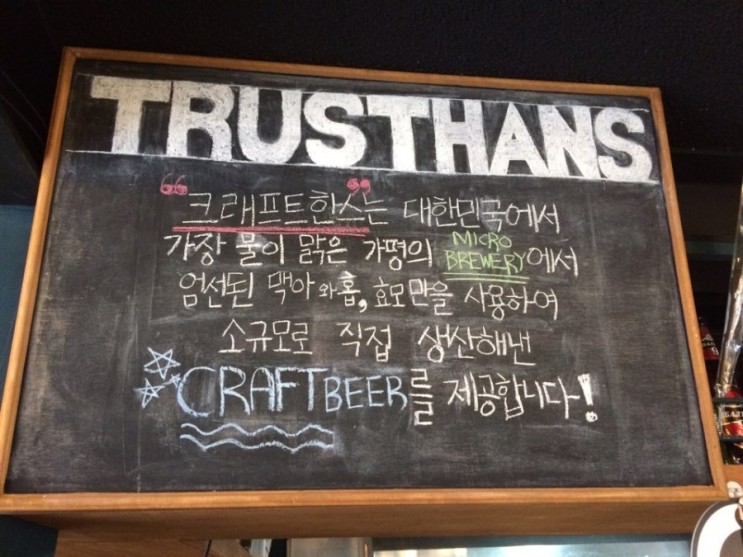 TRUSTHANS
"크래프트한스"는 대한민국에서
가장 물이 맑은 가평의 MICRO BREWERY에서
엄선된 맥아와 홉, 효모만을 사용하여
소규모로 직접 생산해낸
CRAFT BEER를 제공합니다!